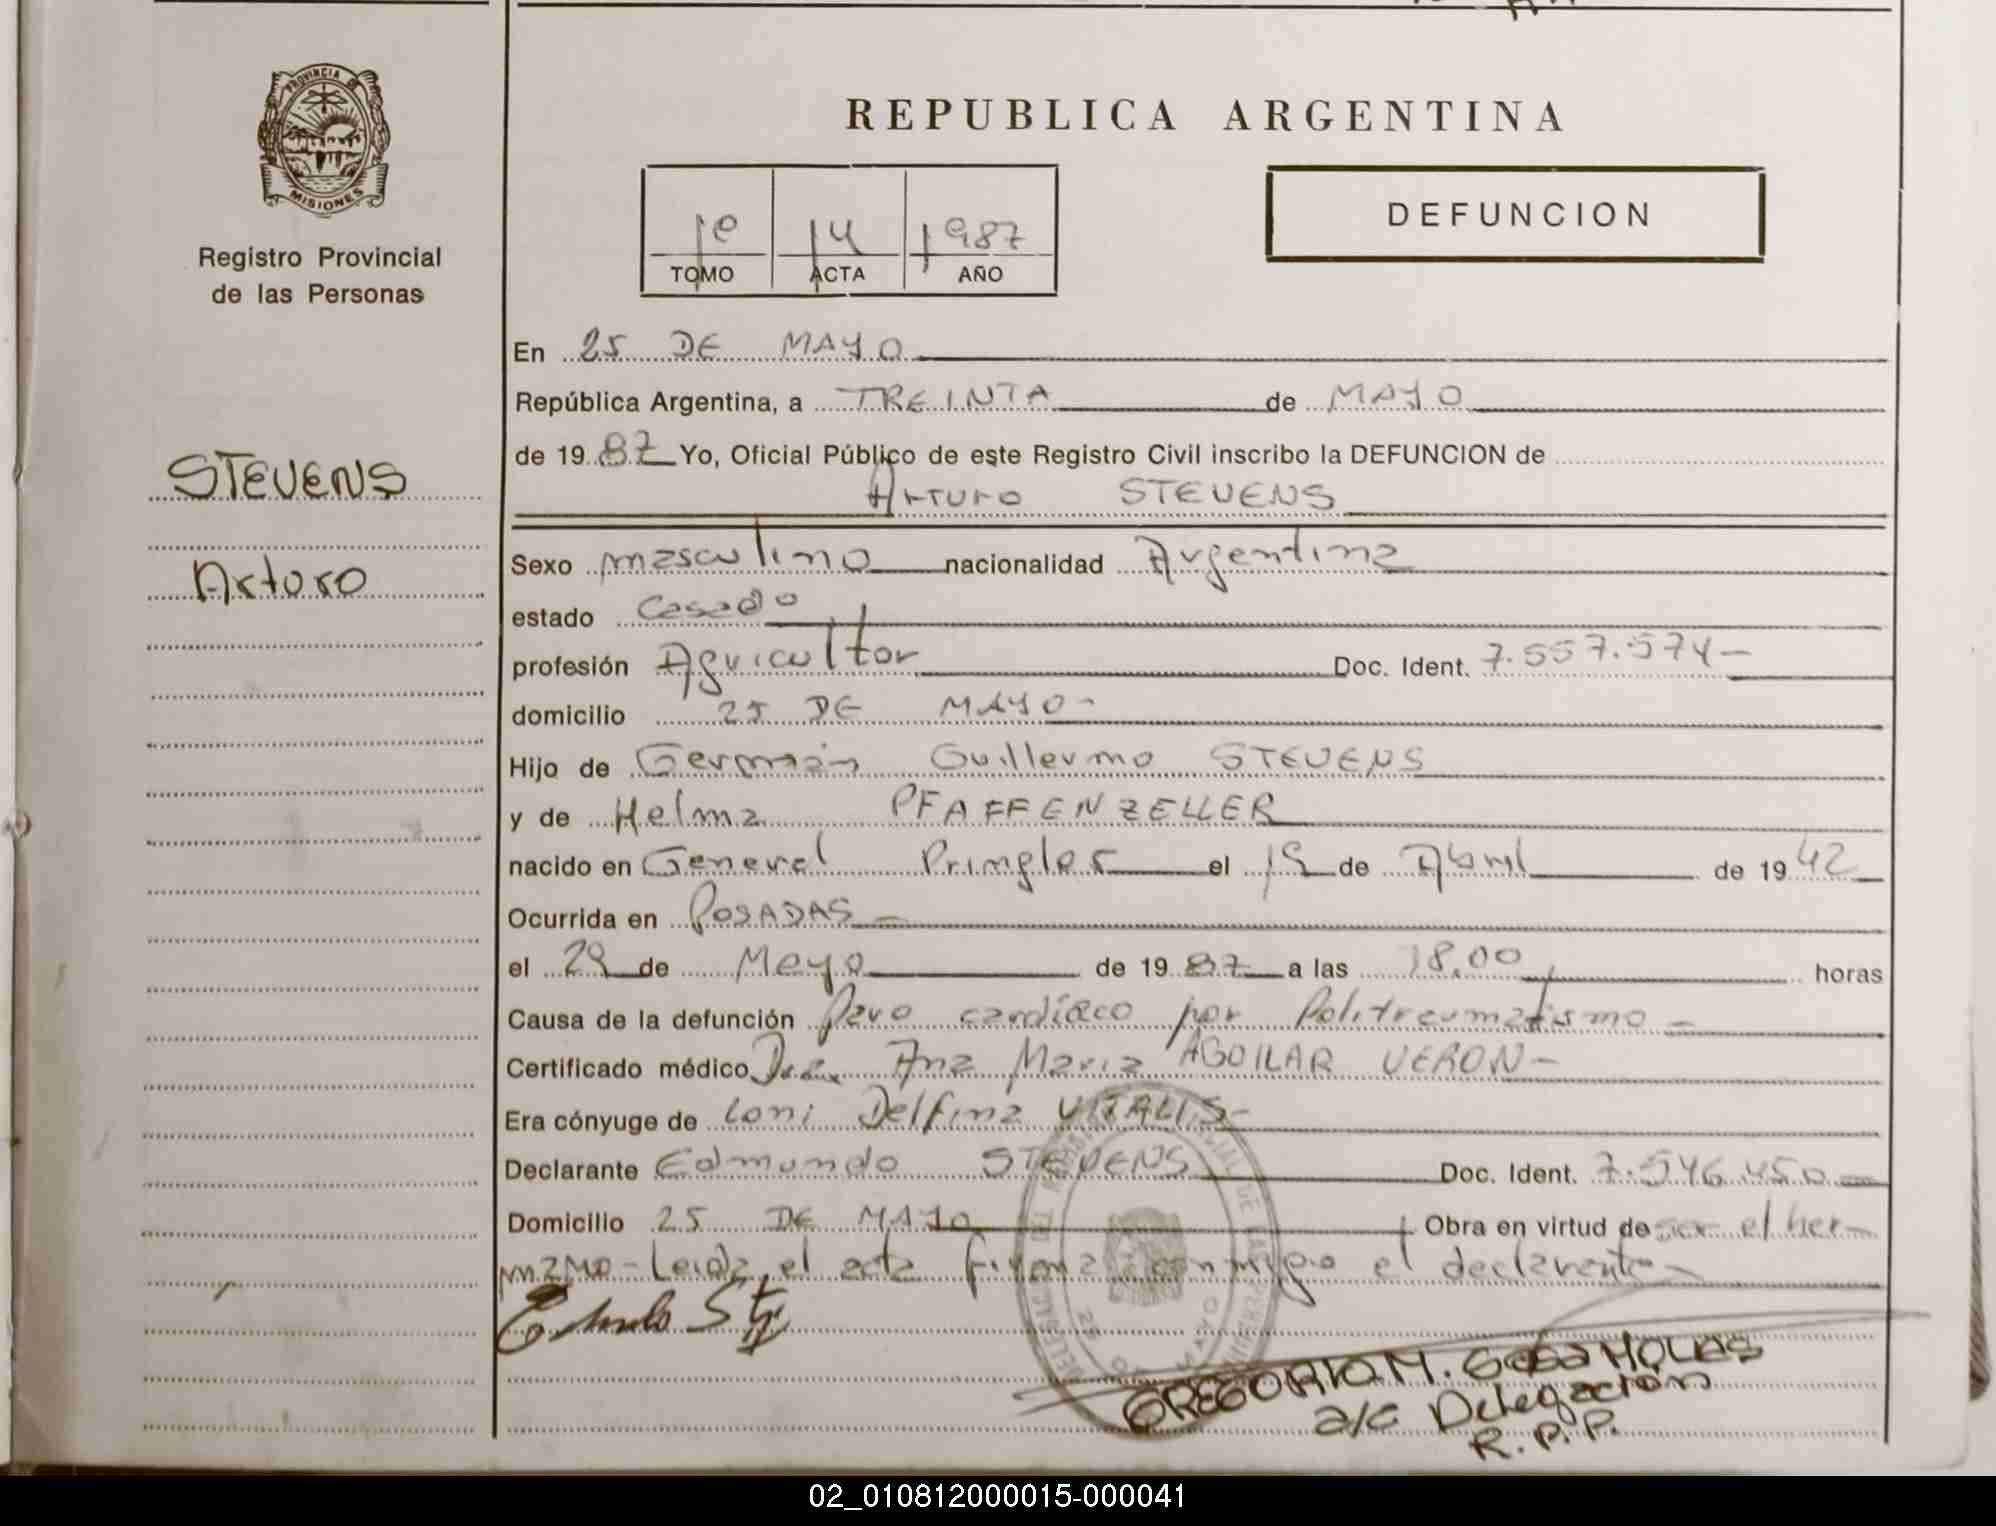 PROVINCIA DE
MISIONES
Registro Provincial
de las Personas
STEVENS
Arturo
REPUBLICA ARGENTINA
1º 14 1987
TOMO ACTA AÑO
DEFUNCION
En 25 DE MAYO
República Argentina, a TREINTA de MAYO
de 1987 Yo, Oficial Público de este Registro Civil inscribo la DEFUNCION de
Arturo STEVENS
Sexo masculino nacionalidad Argentina
estado Casado
profesión Agricultor Doc. Ident. 7.557.574-
domicilio 25 DE MAYO-
Hijo de Germán Guillermo STEVENS
y de Helma PFAFFENZELLER
nacido en General Pringles el 19 de Abril de 1942
Ocurrida en POSADAS-
el 29 de Mayo de 1987 a las 18,00 horas
Causa de la defunción Paro cardíaco por Politraumatismo-
Certificado médico Dra. Ana María AGUILAR VERON-
Era cónyuge de Loni Delfina VITALIS-
Declarante Edmundo STEVENS Doc. Ident. 7.546.450-
Domicilio 25 DE MAYO Obra en virtud de ser el her-
mano- Leída el acta firma conmigo el declarante-
GREGORIO M.
a/c Delegación
R.P.P.
02_010812000015-000041